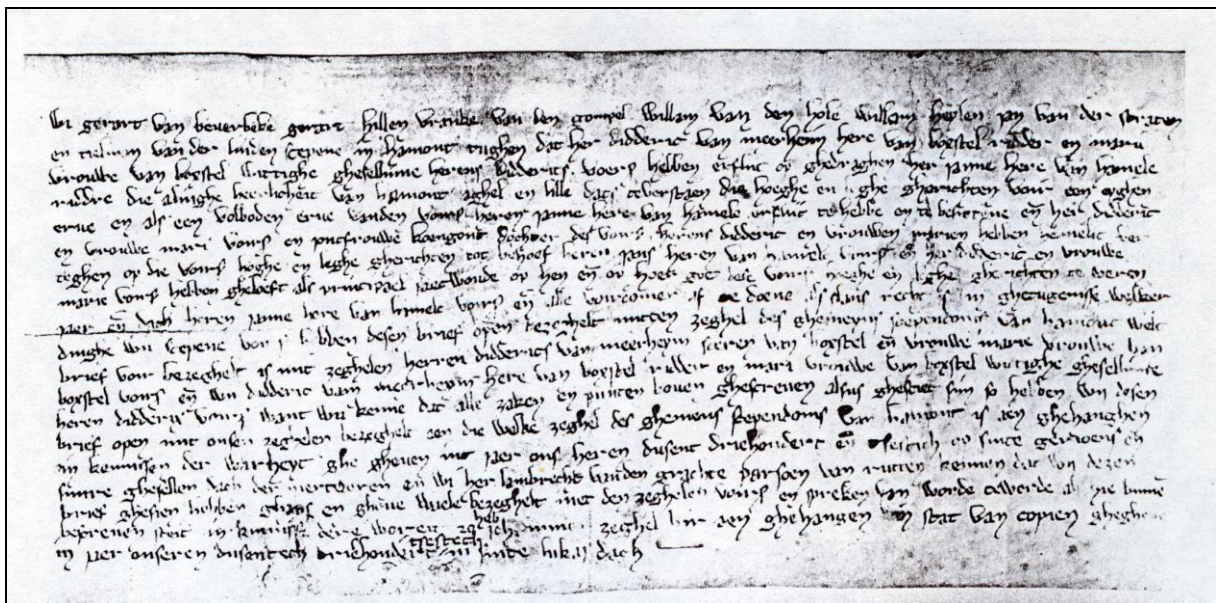 Wi gerart van beuerbeke gerart hillen vranke van den gompel willam van den hole willam heylen jan van der straten
en tielman van der linden scepene in hamont tughen dat her didderic van meerheim here van boxstel ridder en marie
vrouwe van boxstel wittighe ghesellinne herens didderics voers hebben erflic op ghedraghen her janne here van hamele
riddre die alinghe heerlicheit van hamont achel en lille dats te verstaen die hoeghe en leghe gherichten voir een eyghen
erue en als een volboden erue vanden vors heren janne here van hamele erflic te hebbe en te besittene en her didderic
en vrouwe marie vors en joncfrouwe dochter des vors herens didderic en vrouwen marien hebben ver
teghen op die vors hoghe en leghe gherichten tot behoef heren jans heren van hamele vors en her didderic en vrouwe
marie vors hebben gheloeft als principael op hen en op hoer goet dese vors hoeghe en leghe gherichten te weren
jaer en dach heren janne here van hamele vors en alle voircomer af te doene alsulx recht is in ghetughenisse welker
dinghe wii scepene vors hebben desen brief open beseghelt mitten zeghel des ghemeyns scependoms van hamont welc
brief voir bezeghelt is mit zeghelen herren didderics van meerheym heren van boxstel en vrouwe marie vrouwe van
boxstel vors en wii didderic van meerheym here van boxstel ridder en marie vrouwe van boxstel wittighe ghesellinne
heren didderics vors want wii kenne dat alle zaken en punten bouen ghescreuen alsus ghesciet siin so hebben wii desen
brief open mit onsen zeghelen bezeghelt aen die welke zeghel des ghemeins scependoms van hamont is aen ghehanghen
in kennissen der warheyt ghe gheuen int jaer ons heren dusent driehondert en op sinte gereoens en
siinre ghesellen dach der merteleren en wi her lambrecht van den grachte parsoen van rutten kennen dat wii dezen
brief ghesien hebben gans en gheue wale bezeghelt met den zeghelen vors en spreken van worde te worde als hie binne
bescreuen steit in kennisse dere woreit zo heb ich minne zeghel hir aen ghehangen in stat van copien gheghe
in jaer ons heren dusentech driehondert tsestech in sinte dach